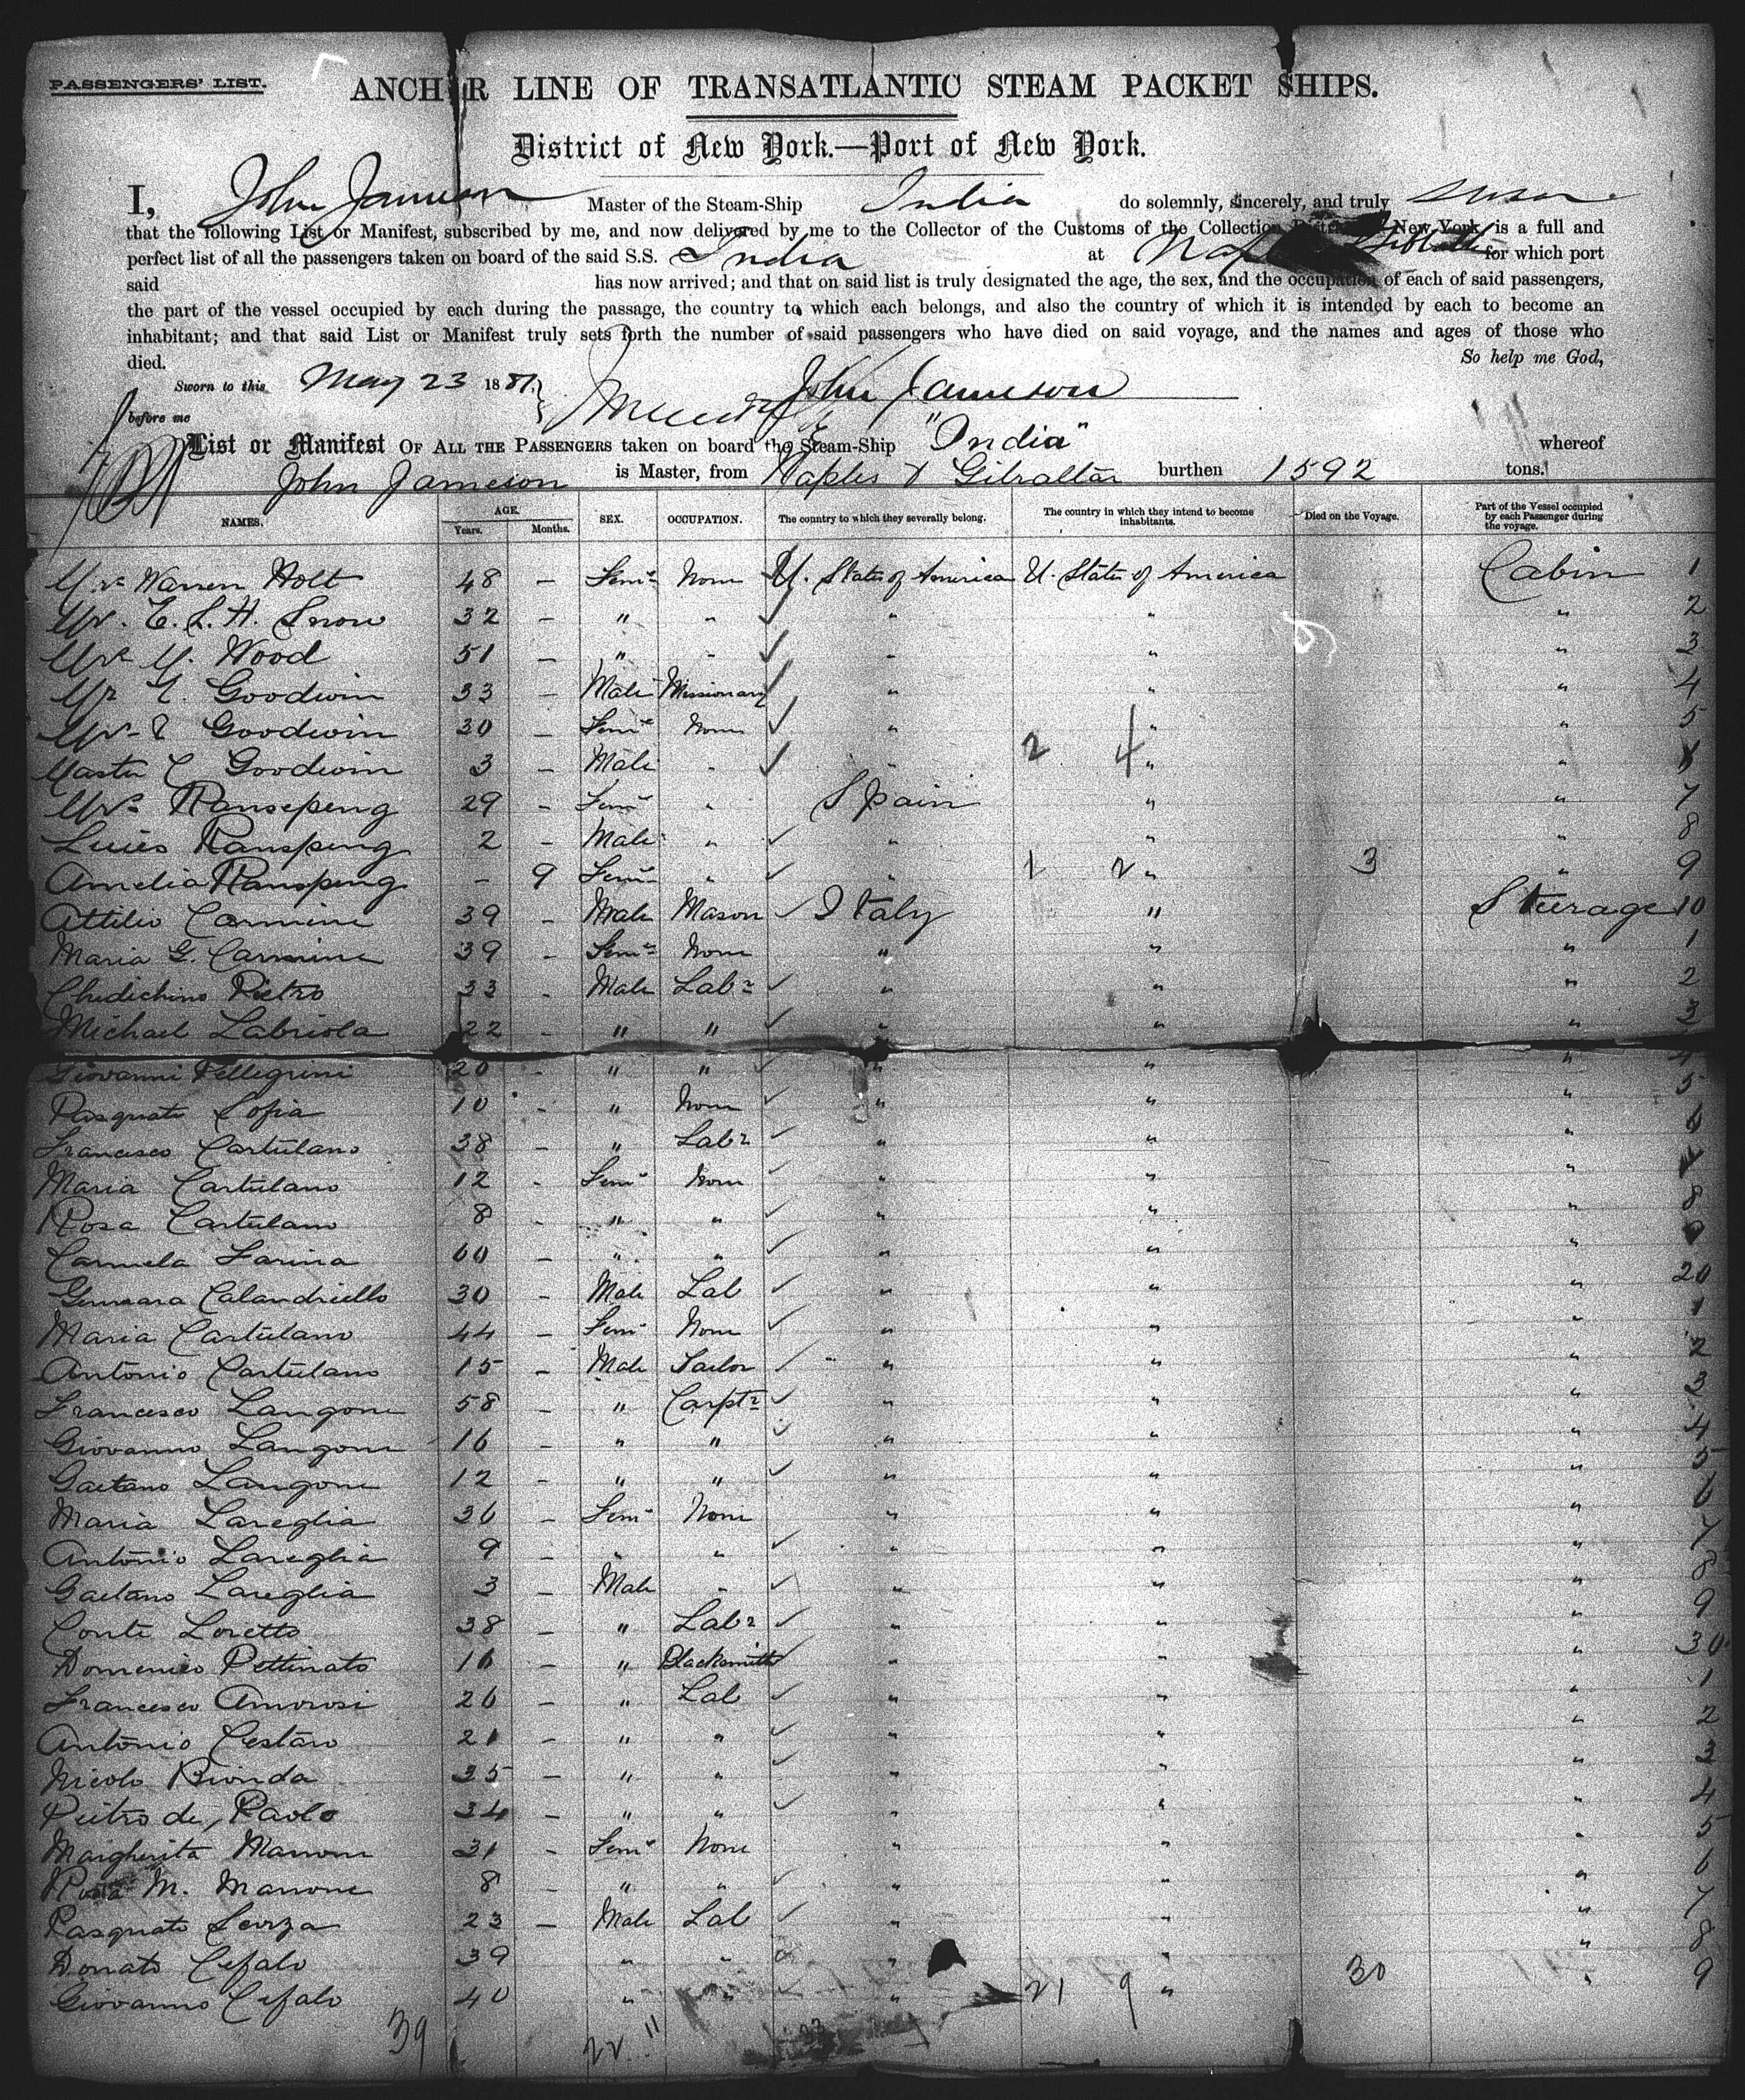 PASSENGERS' LIST.
ANCHOR LINE OF TRANSATLANTIC STEAM PACKET SHIPS.
District of New York.—Port of New York.
I, John Jameson Master of the Steam-Ship India do solemnly, sincerely, and truly swear
that the following List or Manifest, subscribed by me, and now delivered by me to the Collector of the Customs of the Collection District of New York, is a full and
perfect list of all the passengers taken on board of the said S.S. India at for which port
said has now arrived; and that on said list is truly designated the age, the sex, and the occupation of each of said passengers,
the part of the vessel occupied by each during the passage, the country to which each belongs, and also the country of which it is intended by each to become an
inhabitant; and that said List or Manifest truly sets forth the number of said passengers who have died on said voyage, and the names and ages of those who
died. So help me God,
Sworn to this May 23 1881. John Jameson
before me
List or Manifest OF ALL THE PASSENGERS taken on board the Steam-Ship "India" whereof
John Jameson is Master, from Naples & Gibraltar burthen 1592 tons.
NAMES. AGE. Years. Months. SEX. OCCUPATION. The country to which they severally belong. The country in which they intend to become inhabitants. Died on the Voyage. Part of the Vessel occupied by each Passenger during the voyage.
Mrs Warren Holt 48 - Feme None U. States of America U. States of America Cabin 1
E. L. H. Snow 32 - " " " " " 2
Mrs M. Wood 51 - " " " " " 3
Mr Goodwin 33 - Male Missionary " " " 4
Goodwin 30 - Feme None " " " 5
Master C Goodwin 3 - Male " " 2 4 " "
Mrs Ransepeng 29 - Feme " Spain " " 7
Luies Ranspeng 2 - Male " " " " 8
Amelia Ranspeng - 9 Feme " " 1 2 " 3 " 9
Attilio Carmine 39 - Male Mason Italy " Steerage 10
Maria G. Carmine 39 - Feme None " " " 1
Chidichino Pietro 33 - Male Labr " " " 2
Michael Labriola 22 - " " " " " 3
Giovanni Pellegrini 20 - " " " " " 4
Pasquato Sofia 10 - " None " " " 5
Francesco Cartulano 38 - " Labr " " " 6
Maria Cartulano 12 - Feme None " " " 7
Rosa Cartulano 8 - " " " " " 8
Carmela Farina 60 - " " " " " 9
Gennara Calandriello 30 - Male Lab " " " 20
Maria Cartulano 44 - Feme None " " " 1
Antonio Cartulano 15 - Male Tailor " " " 2
Francesco Langone 58 - " Carptr " " " 3
Giovanno Langone 16 - " " " " " 4
Gaetano Langone 12 - " " " " " 5
Maria Lareglia 36 - Feme None " " " 6
Antonio Lareglia 9 - " " " " " 7
Gaetano Lareglia 3 - Male " " " " 8
Conte Loretto 38 - " Labr " " " 9
Domenico Pettinato 16 - " Blacksmith " " " 30
Francesco Amorosi 26 - " Lab " " " 1
Antonio Cestaro 21 - " " " " " 2
Nicolo Bionda 35 - " " " " " 3
Pietro de Paolo 34 - " " " " " 4
Margherita Marrone 31 - Feme None " " " 5
Rosa M. Marrone 8 " " " " " 6
Pasquato Scorza 23 - Male Lab " " " 7
Donato Cefalo 39 " " " " " 8
Giovanno Cefalo 40 " " " 21 9 " 30 " 9
39 22 " 33